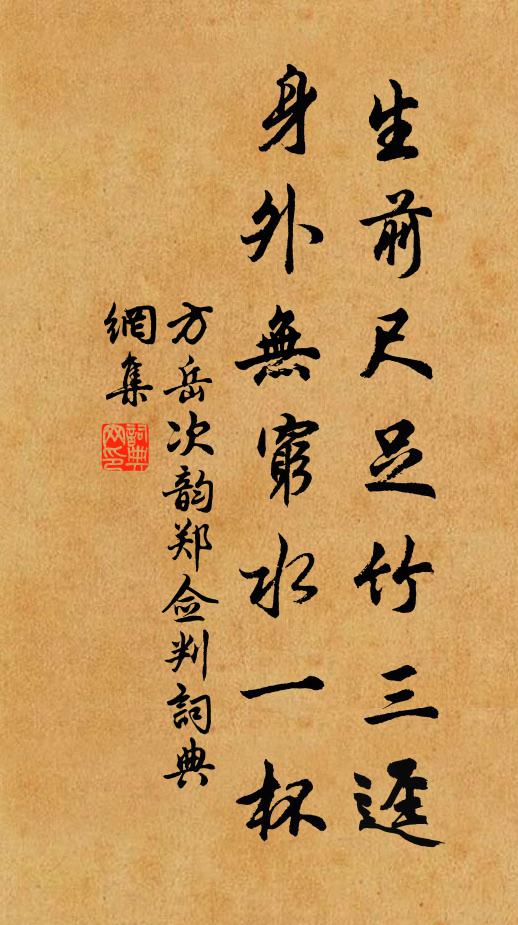 生前尺足竹三逕
身外無窮水一杯
方岳次韵郑佥判詞典
網集
詞典
网印